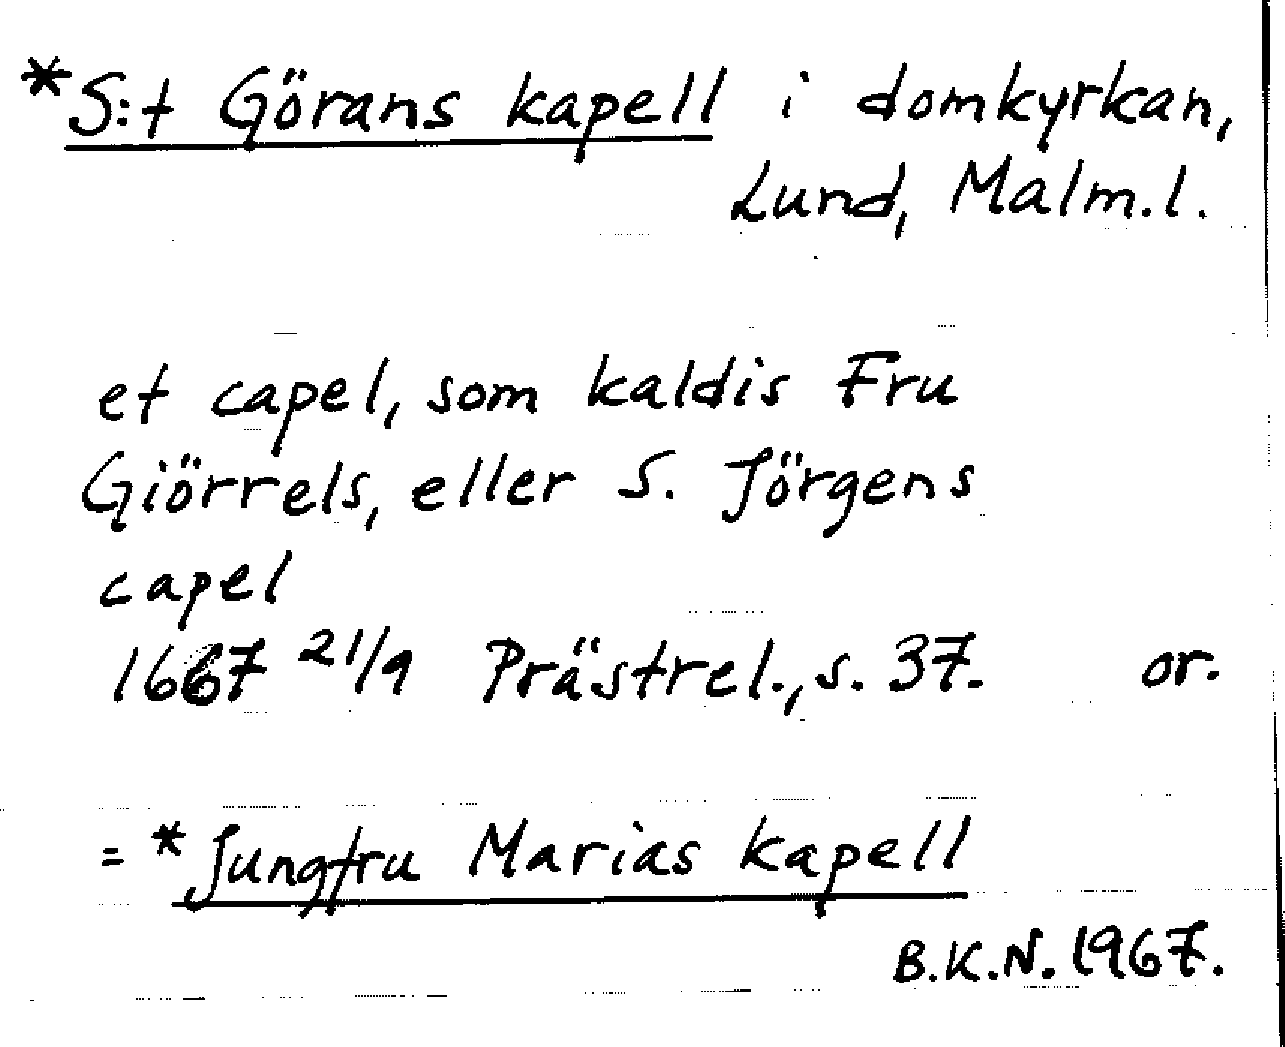 *S:t Görans kapell i domkyrkan,
Lund, Malm.l.
et capel, som kaldis Fru
Giörrels, eller S. Jörgens
capel
1667 21/9 Prästrel., s. 37. or.
= *Jungfru Marias kapell
B.K.N. 1967.